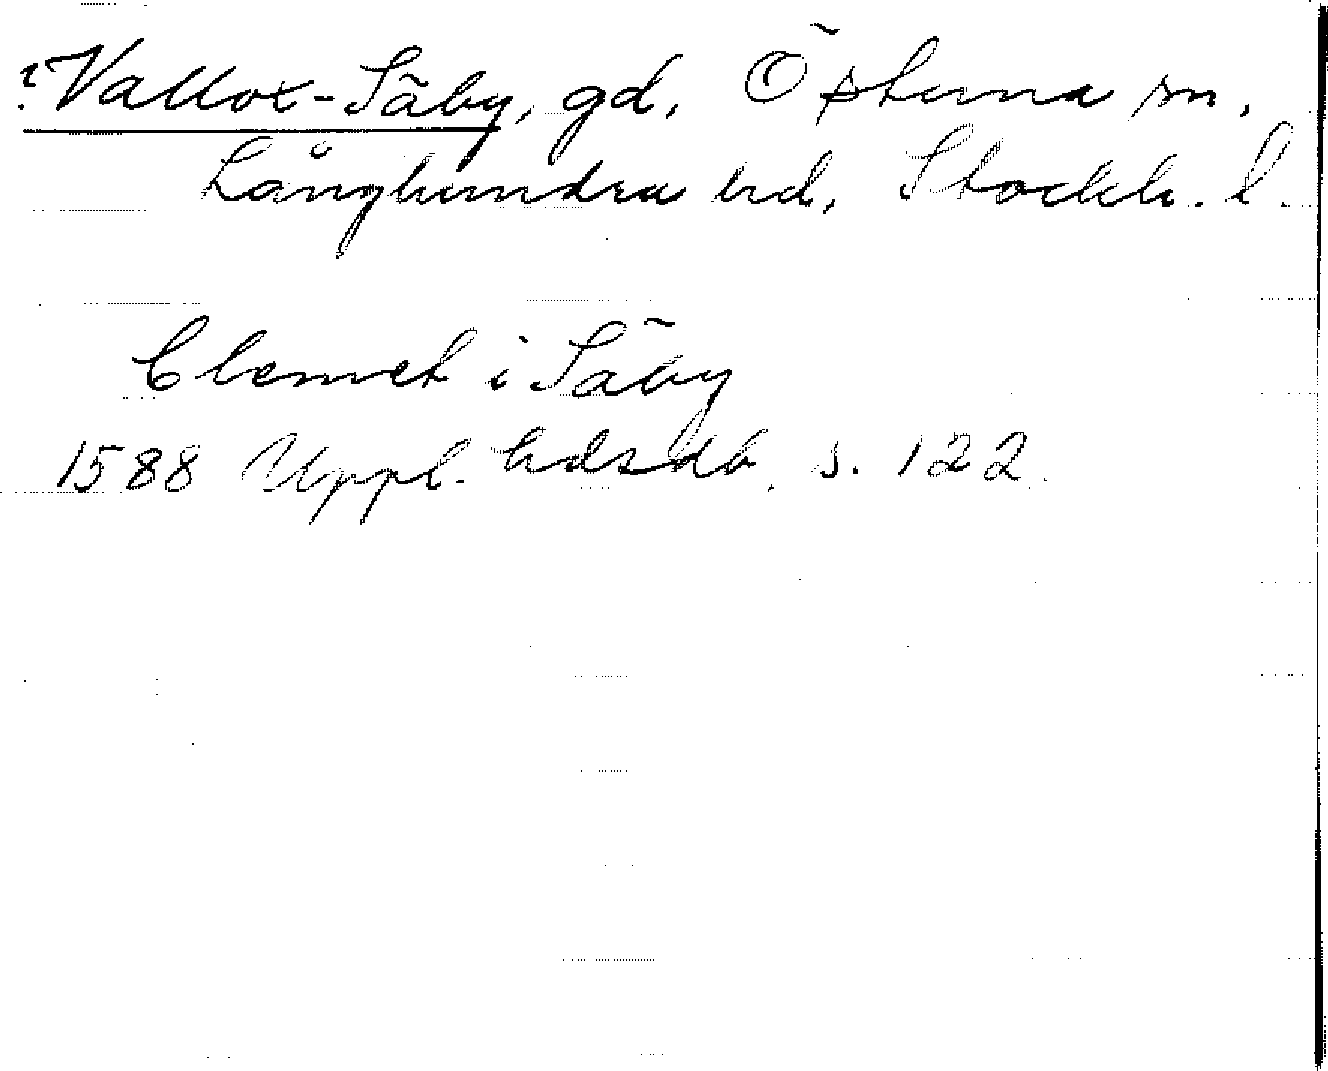 ?Vallox-Säby, gd, Össterna sn,
Långhundra hd, Stockh. l.
Clemet i Säby
1588 Uppl. hdsdb. s. 122.